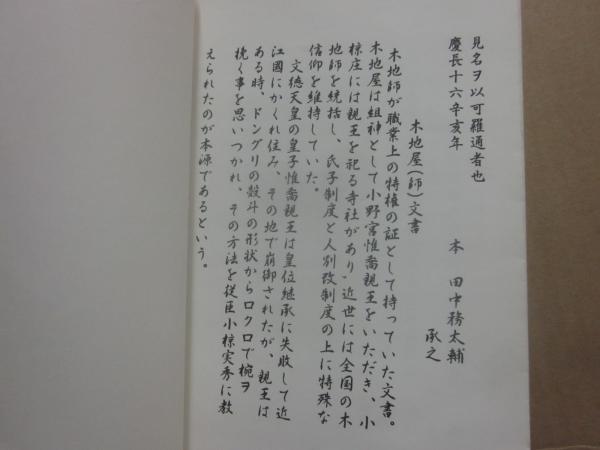 見名ヲ以可羅通者也
慶長十六辛亥年
本田中務太輔
承之
木地屋(師)文書
木地師が職業上の特権の証として持っていた文書。
木地屋は組神として小野宮惟喬親王をいただき、小
椋庄には親王を祀る寺社があり、近世には全国の木
地師を統括し、氏子制度と人別改制度の上に特殊な
信仰を維持していた。
文徳天皇の皇子惟喬親王は皇位継承に失敗して近
江國にかくれ住み、その地で崩御されたが、親王は
ある時、ドングリの殻斗の形状からロクロで椀ヲ
挽く事を思いつかれ、その方法を従臣小椋実秀に教
えられたのが本源であるという。